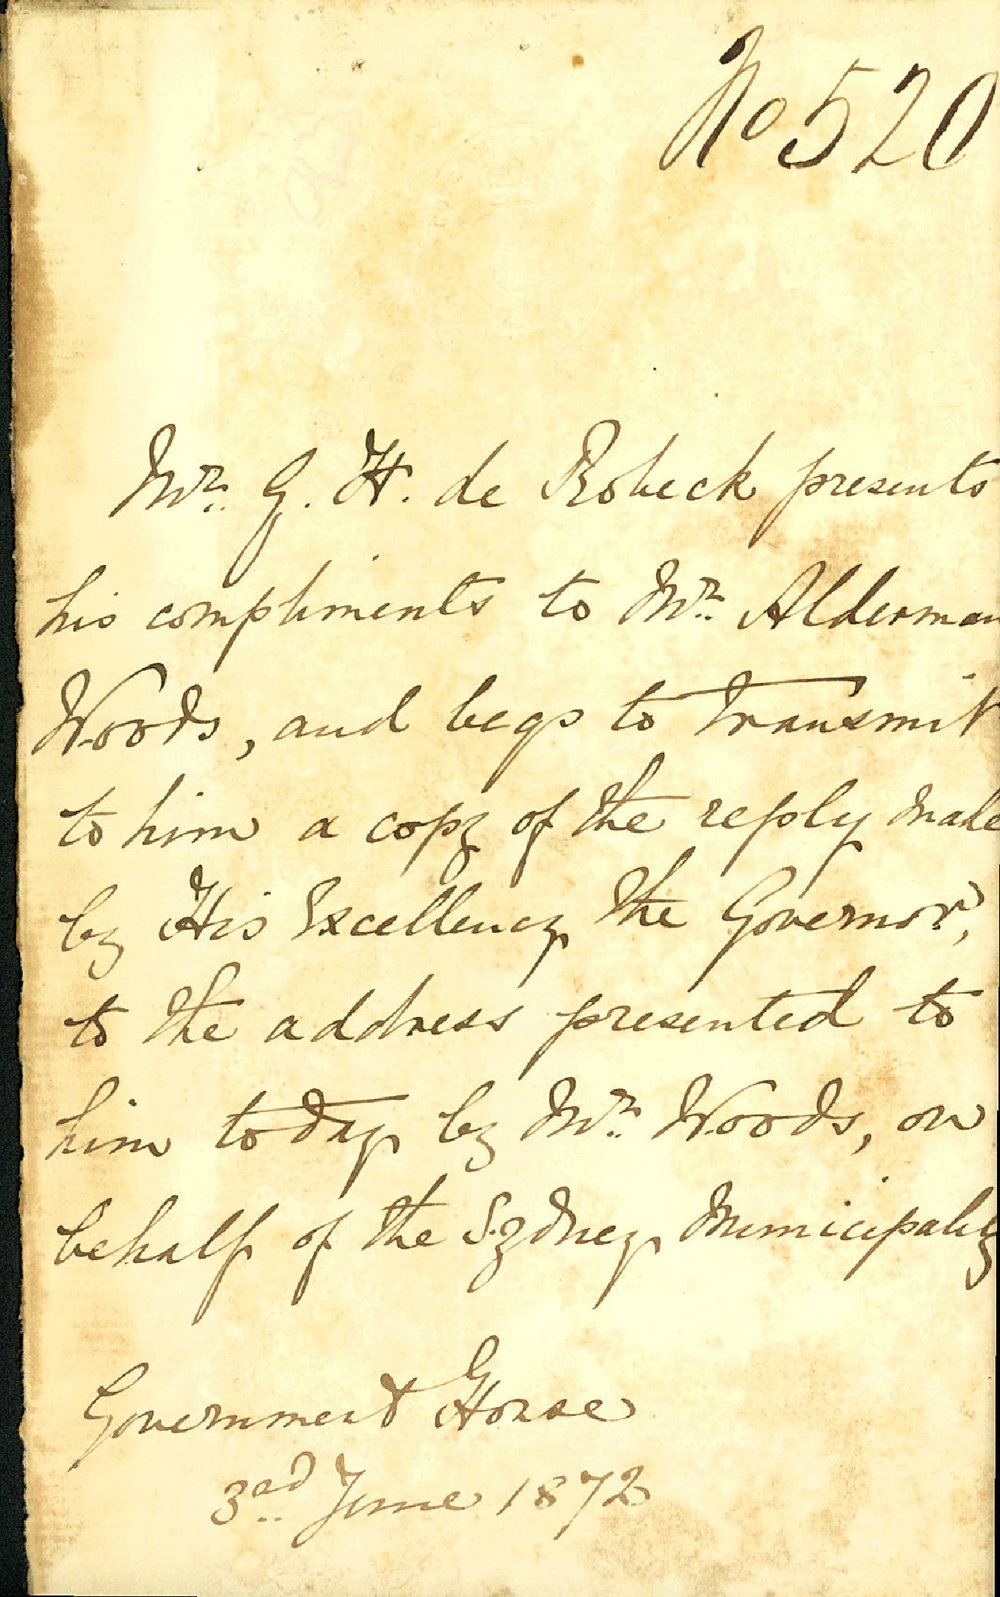 No 520
Mr. G. H. de Robeck presents
his compliments to Mr. Alderman
Woods, and begs to transmit
to him a copy of the reply made
by His Excellency the Governor,
to the address presented to
him today by Mr. Woods, on
behalf of the Sydney Municipality
Government House
3rd June 1872